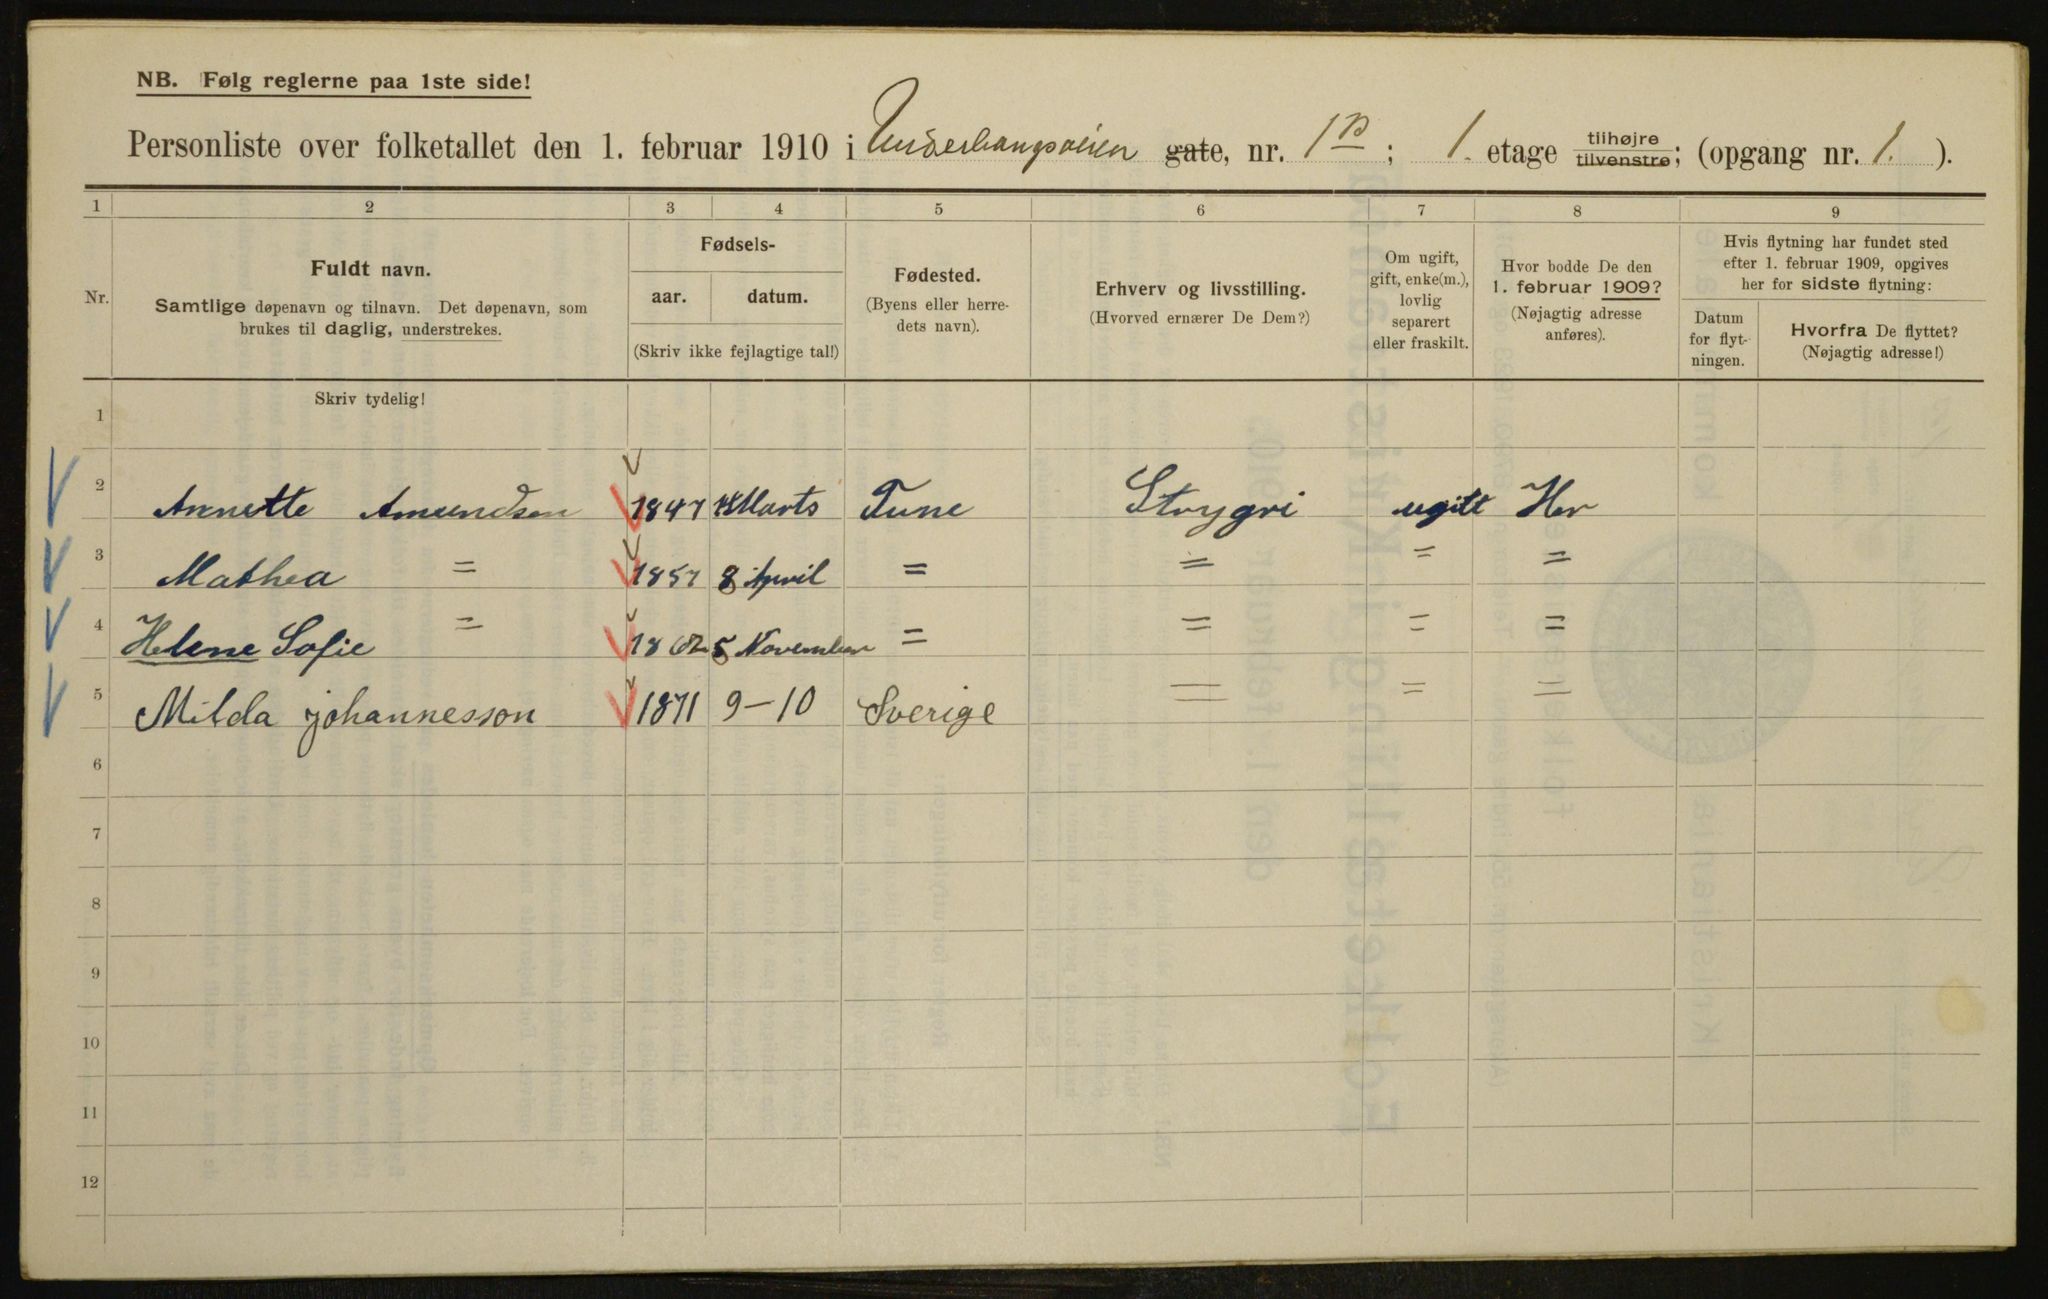 NB. Følg reglerne paa 1ste side!
Personliste over folketallet den 1. februar 1910 i Underhaugsveien gate, nr. 1B; 1. etage tilhøjre tilvenstre; (opgang nr. 1.).
1 2 3 4 5 6 7 8 9
Nr.
Fuldt navn.
Samtlige døpenavn og tilnavn. Det døpenavn, som
brukes til daglig, understrekes.
Fødsels-
aar. datum.
(Skriv ikke fejlagtige tal!)
Fødested.
(Byens eller herre-
dets navn).
Erhverv og livsstilling.
(Hvorved ernærer De Dem?)
Om ugift,
gift, enke(m.),
lovlig
separert
eller fraskilt.
Hvor bodde De den
1. februar 1909?
(Nøjagtig adresse
anføres).
Hvis flytning har fundet sted
efter 1. februar 1909, opgives
her for sidste flytning:
Datum
for flyt-
ningen.
Hvorfra De flyttet?
(Nøjagtig adresse!)
Skriv tydelig!
1
2 Annette Amundsen 1847 Marts Tune Strygri ugift Her
3 Mathea = 1857 8 April = = = =
4 Helene Sofie = 1862 5 November = = = =
5 Milda johannesson 1871 9-10 Sverige = = =
6
7
8
9
10
11
12